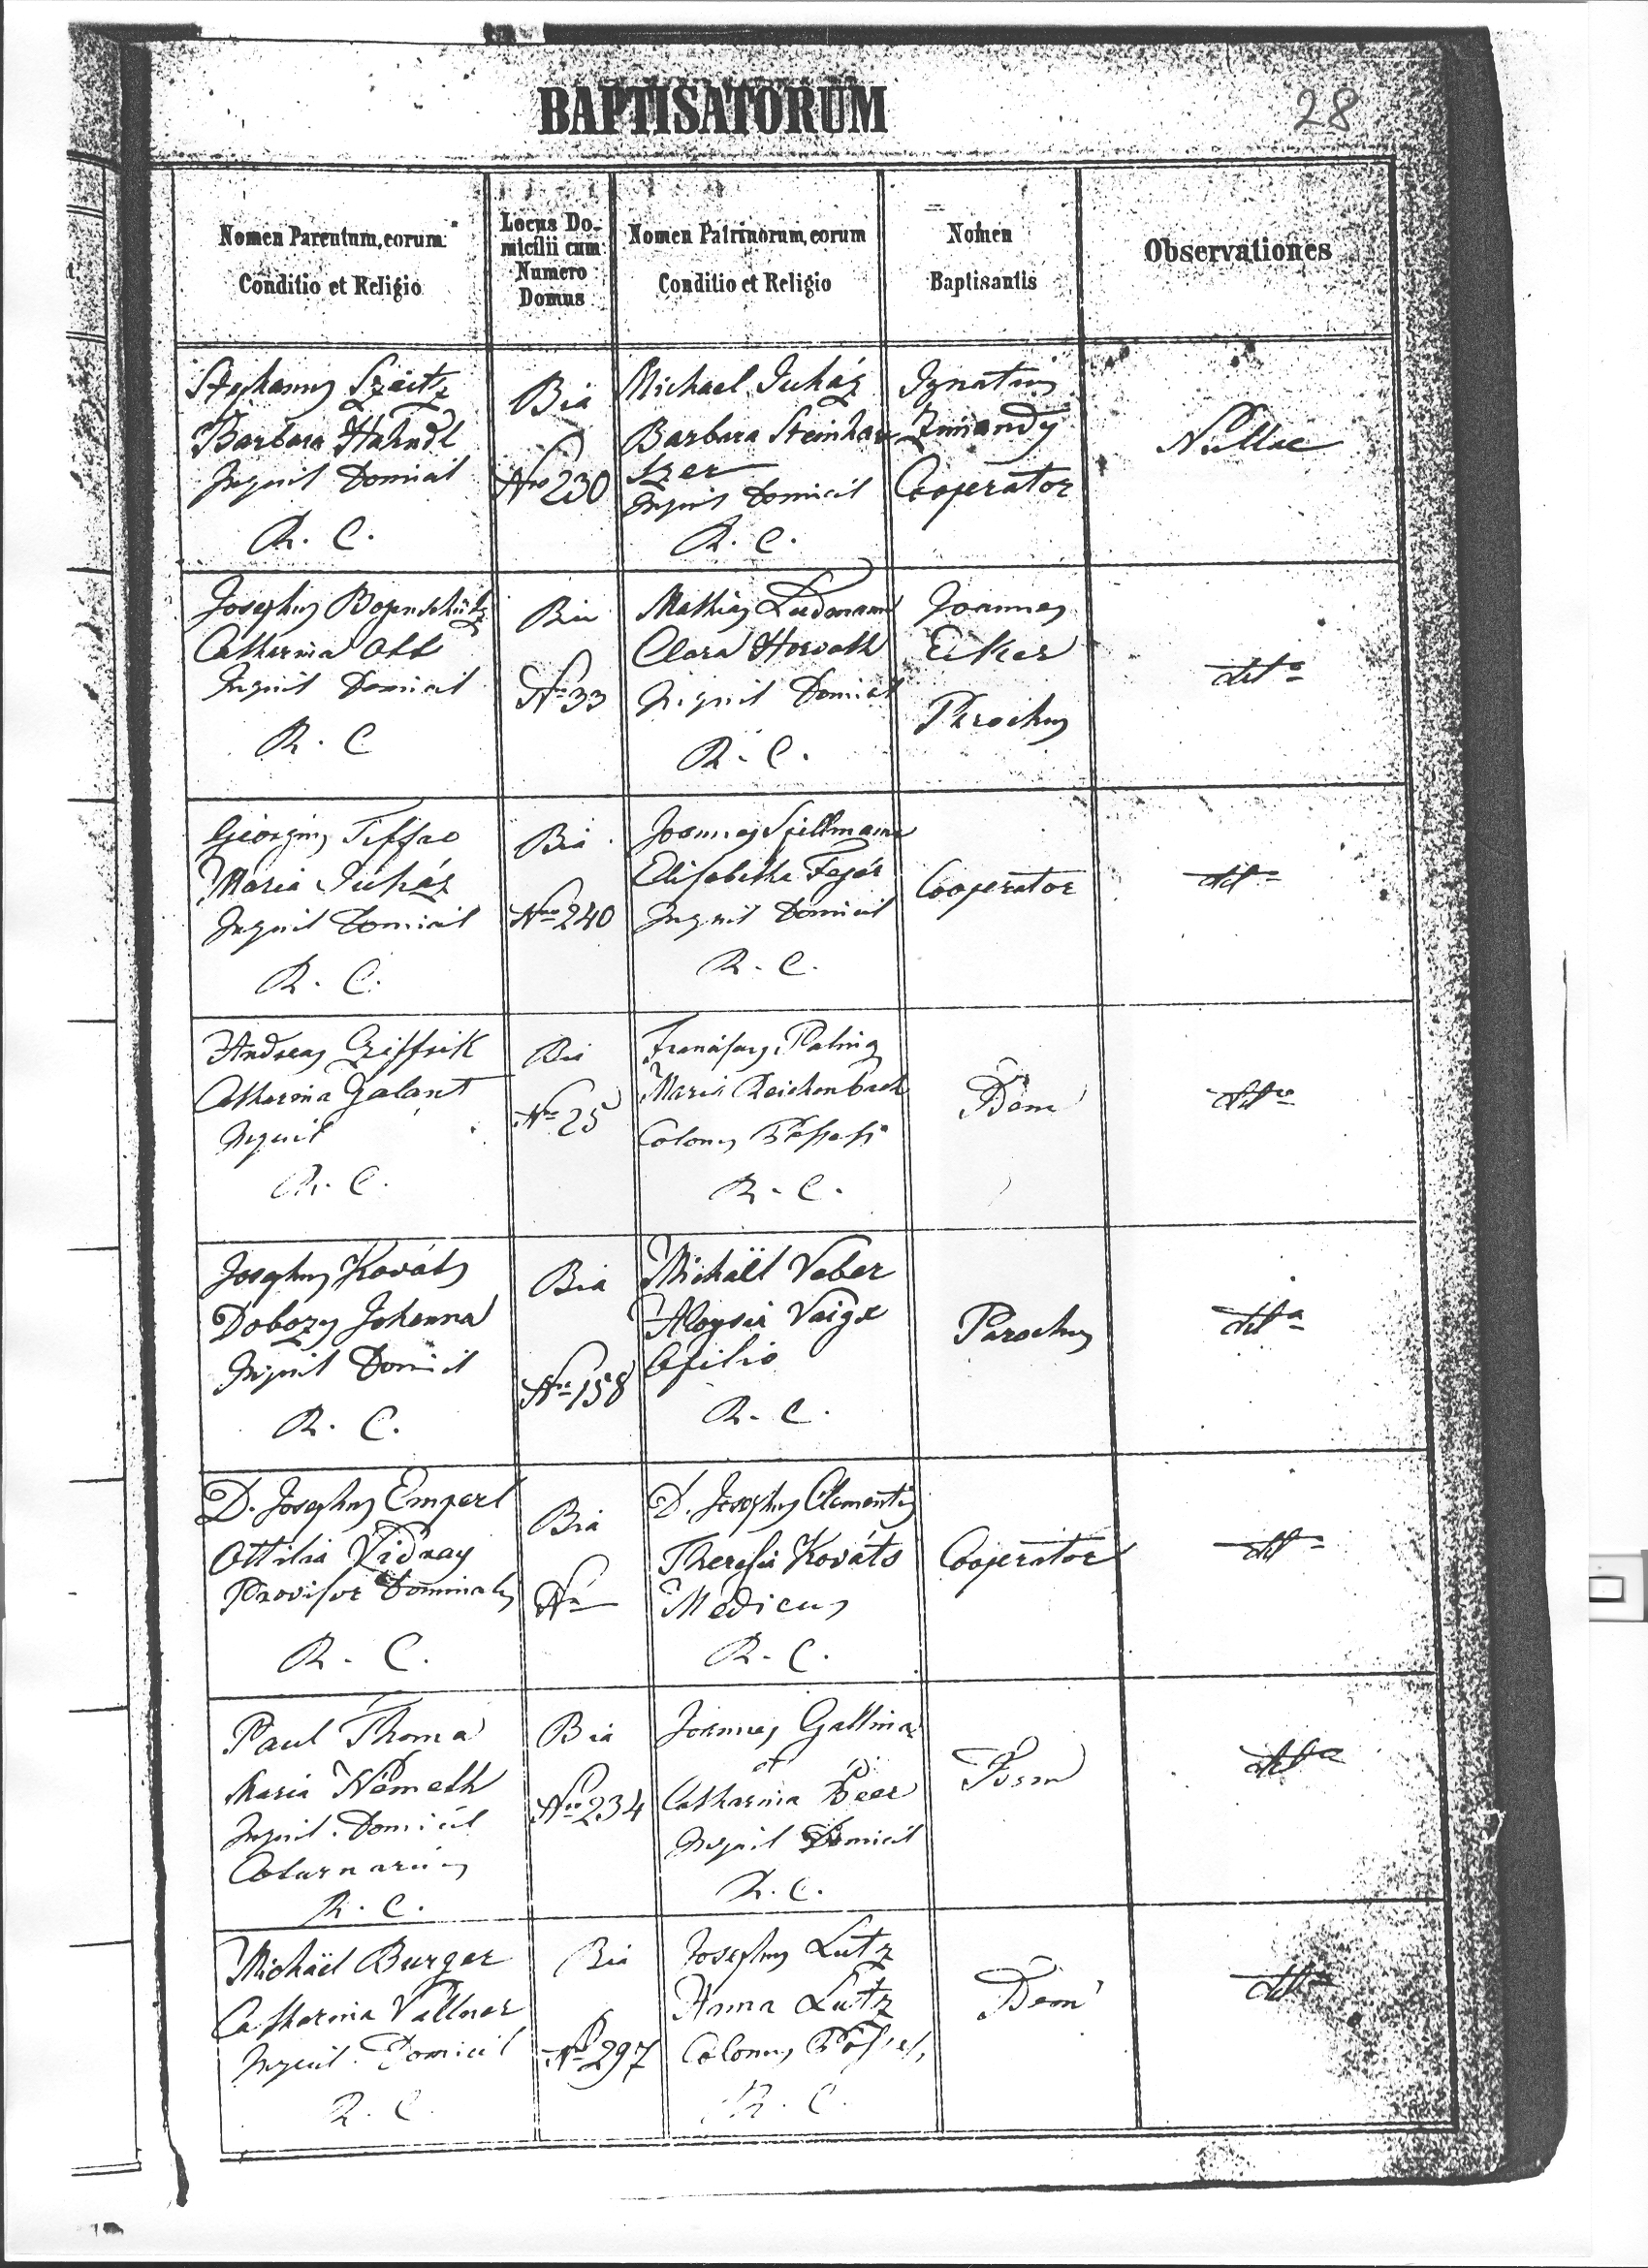 BAPTISATORUM
28
Nomen Parentum, eorum
Conditio et Religio
Locus Do-
micilii cum
Numero
Domus
Nomen Patrinorum, eorum
Conditio et Religio
Nomen
Baptisantis
Observationes
Stephanus Szeitz
Barbara Hahndl
Inquil Domicil
R. C.
Bia
Nro 230
Michael Juház
Barbara Steinhau
szer
Inquil Domicil
R. C.
Ignatius
Zimandy
Cooperator
Nullae
Josephus Bogenschütz
Catharina Ott
Inquil Domicil
R. C
Bia
No 33
Mathias Ludmann
Clara Horvath
Inquil Domicil
R. C.
Joannes
Eiker
Parochus
ditto
Georgius
Maria Juház
Inquil Domicil
R. C.
Bia
Nro 240
Joannes Spillmann
Elisabetha Fejér
Inquil Domicil
R. C.
Cooperator
ditto
Andreas Cziffrik
Catharina Galant
Inquil
R. C.
Bia
Nro 25
Franciscus Paling
Maria Reichenbach
Colonus Possess
R. C.
Idem
ditto
Josephus Kováts
Dobozy Johanna
Inquil Domicil
R. C.
Bia
No 158
Michäel Veber
Aloysia Vaige
Opilio
R. C.
Parochus
ditto
D. Josephus Emperl
Ottilia Vidnay
Provisor Dominalis
R. C.
Bia
No
D. Josephus Clementis
Theresia Kováts
Medicus
R. C.
Cooperator
ditto
Paul Thoma
Maria Németh
Inquil. Domicil
Coturnarius
R. C.
Bia
Nro 234
Joannes Gallina
et
Catharina Beer
Inquil Domicil
R. C.
Idem
ditto
Michäel Burger
Catharina Vallner
Inquil. Domicil
R. C.
Bia
No 297
Josephus Lutz
Anna Lutz
Colonus Possess,
R. C.
Idem
ditto